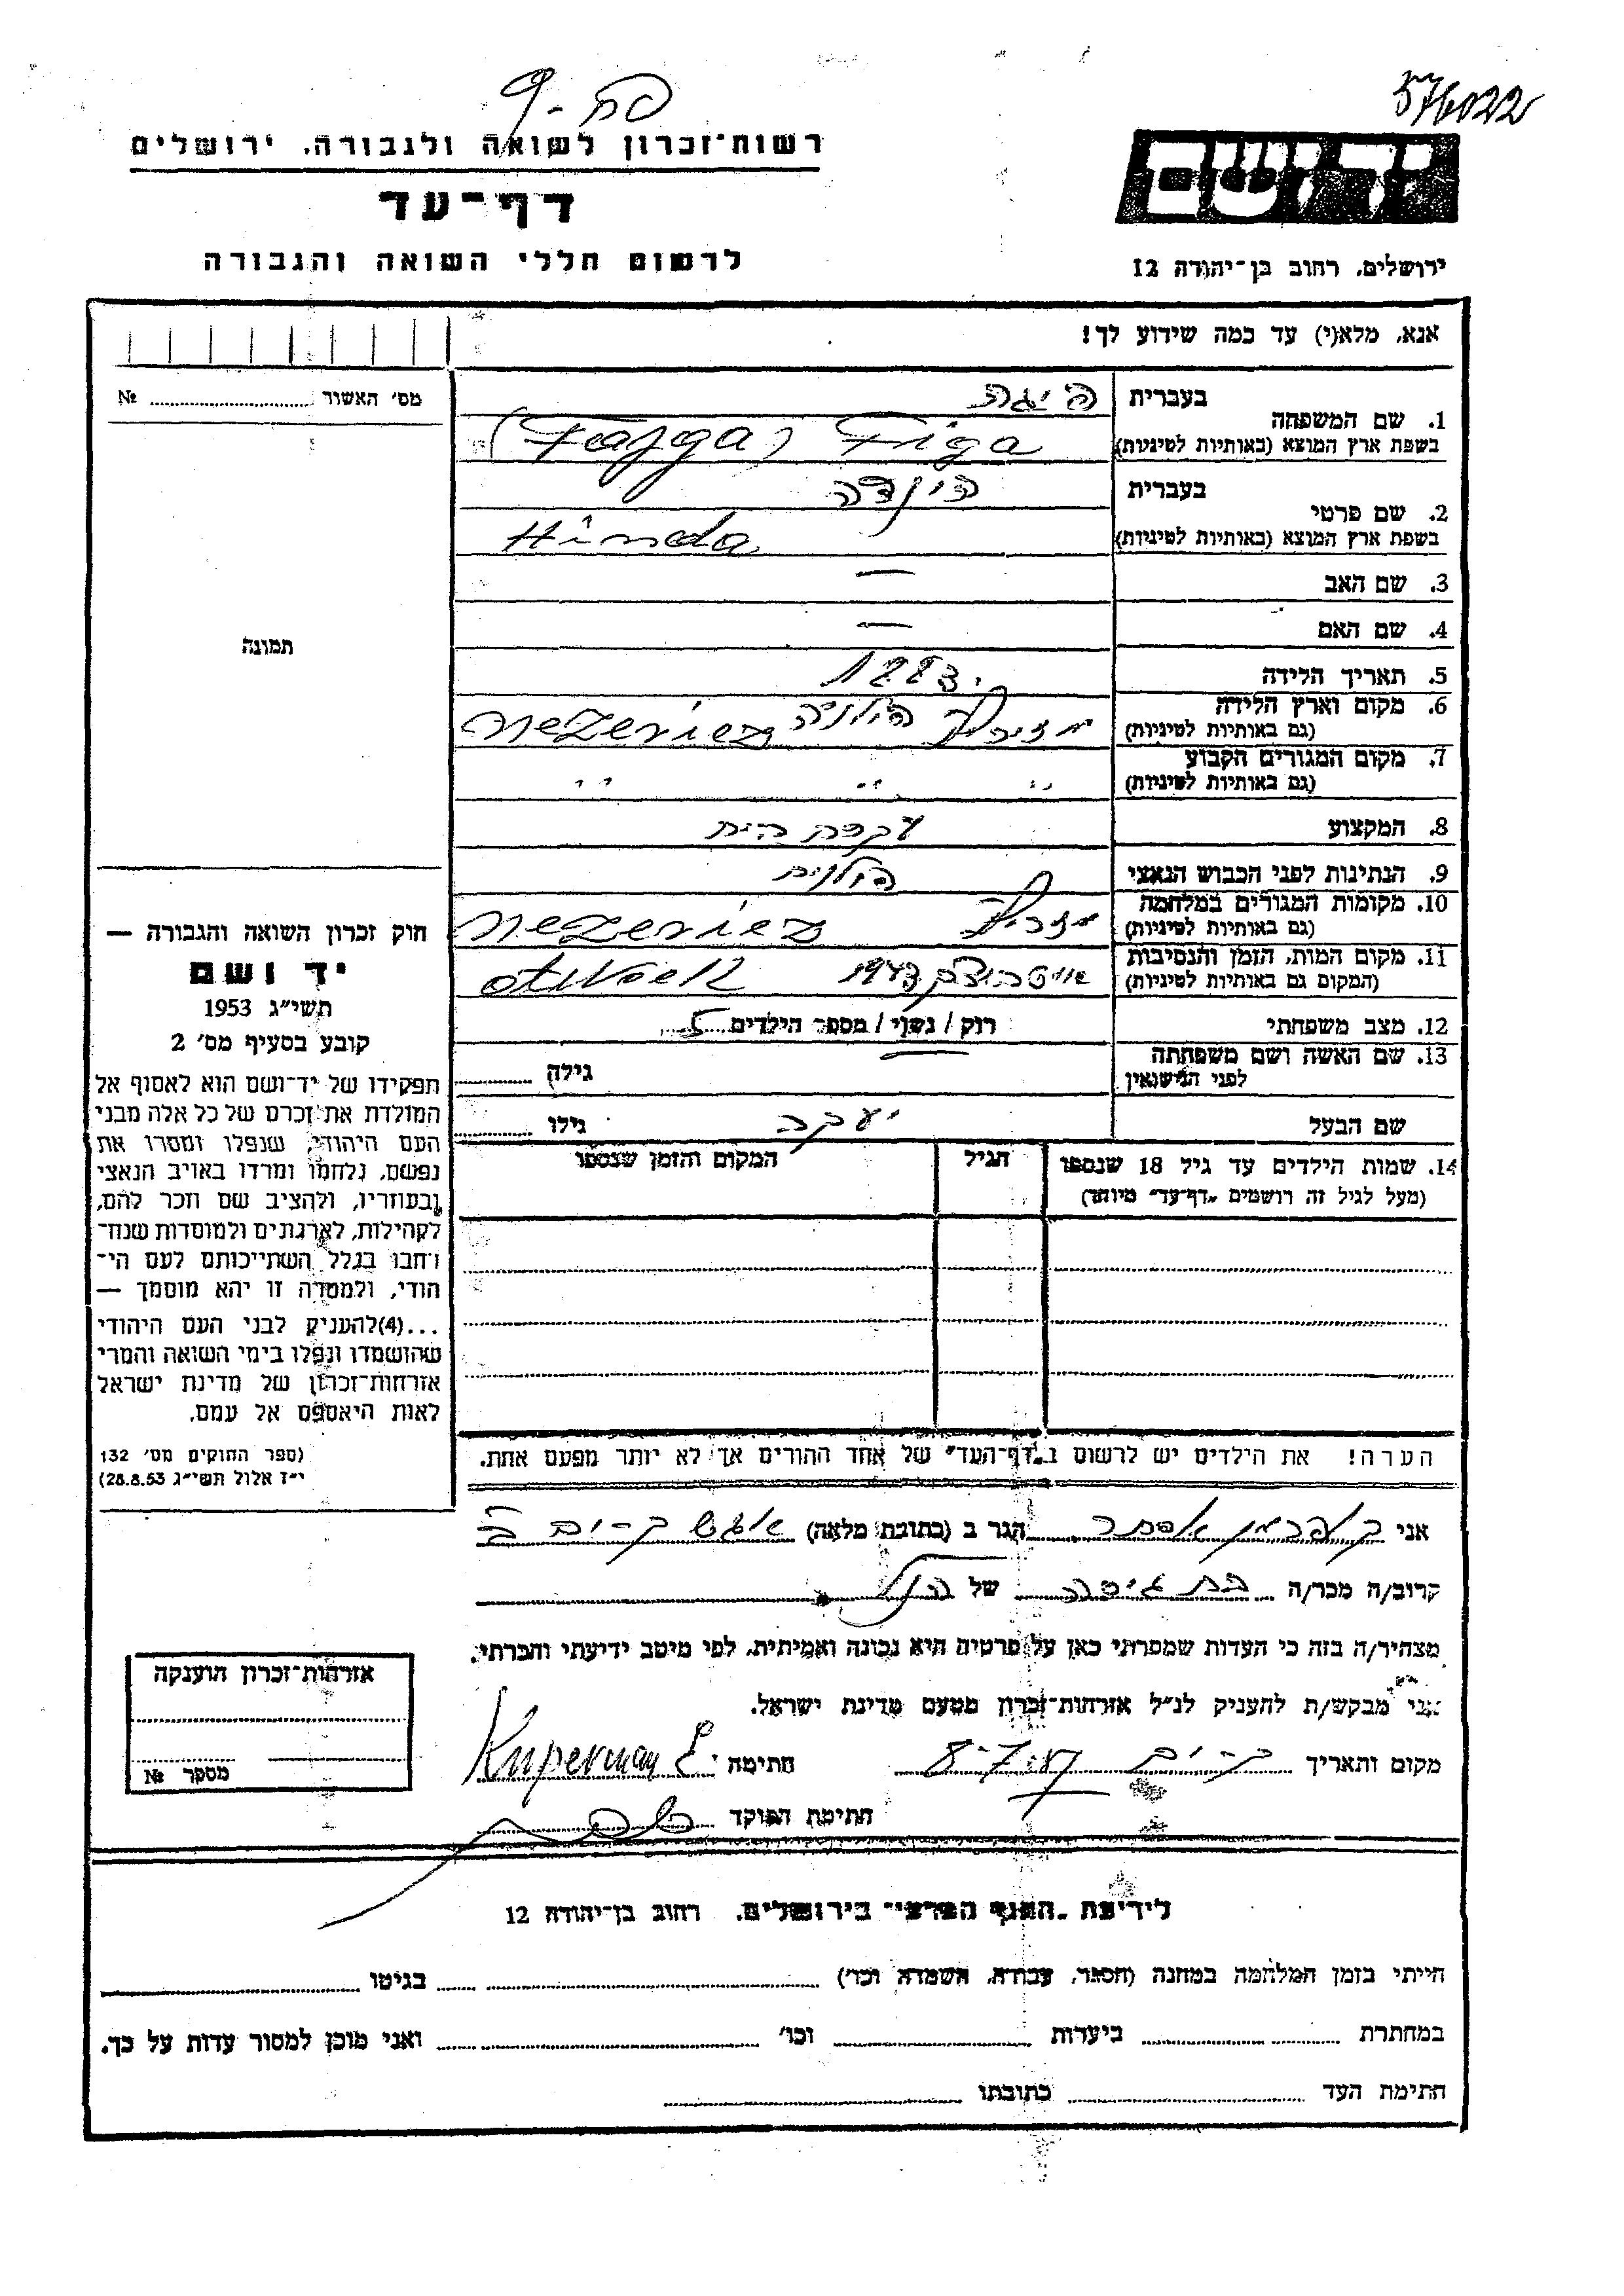 פת - 9
576022
רשות־זכרון לשואה ולגבורה, ירושלים
דף־עד
לרשום חללי השואה והגבורה
יד ושם
ירושלים, רחוב בן־יהודה 12
אנא, מלא(י) עד כמה שידוע לך!
מס׳ האשור № 
תמונה
1. שם המשפחה
בעברית פיגה
בשפת ארץ המוצא (באותיות לטיניות) Figa (Fajga)
2. שם פרטי
בעברית הינדה
בשפת ארץ המוצא (באותיות לטיניות) Hinda
3. שם האב —
4. שם האם —
5. תאריך הלידה 1883
6. מקום וארץ הלידה
(גם באותיות לטיניות) פולניה Mezericz
7. מקום המגורים הקבוע
(גם באותיות לטיניות) " " "
8. המקצוע עקרת בית
9. הנתינות לפני הכבוש הנאצי פולנית
10. מקומות המגורים במלחמה
(גם באותיות לטיניות) Mezericz
11. מקום המות, הזמן והנסיבות
(המקום גם באותיות לטיניות) 1943
12. מצב משפחתי רוק / נשוי / מספר הילדים 5
13. שם האשה ושם משפחתה
לפני הנישואין
גילה
שם הבעל יעקב גילו
14. שמות הילדים עד גיל 18 שנספו
(מעל לגיל זה רושמים „דף־עד״ מיוחד)
הגיל
המקום והזמן שנספו
הערה! את הילדים יש לרשום ב„דף־העד״ של אחד ההורים אך לא יותר מפעם אחת.
חוק זכרון השואה והגבורה —
יד ושם
תשי״ג 1953
קובע בסעיף מס׳ 2
תפקידו של יד־ושם הוא לאסוף אל
המולדת את זכרם של כל אלה מבני
העם היהודי, שנפלו ומסרו את
נפשם, נלחמו ומרדו באויב הנאצי
ובעוזריו, ולהציב שם וזכר להם,
לקהילות, לארגונים ולמוסדות שנח־
רבו בגלל השתייכותם לעם הי־
הודי, ולמטרה זו יהא מוסמך —
...(4)להעניק לבני העם היהודי
שהושמדו ונפלו בימי השואה והמרי
אזרחות־זכרון של מדינת ישראל
לאות היאספם אל עמם.
(ספר החוקים מס׳ 132
י״ז אלול תשי״ג 28.8.53)
אני קופרמן אסתר הגר ב (כתובת מלאה)
קרוב/ה מכר/ה של הנ״ל
מצהיר/ה בזה כי העדות שמסרתי כאן על פרטיה היא נכונה ואמיתית, לפי מיטב ידיעתי והכרתי.
אני מבקש/ת להעניק לנ״ל אזרחות־זכרון מטעם מדינת ישראל.
מקום והתאריך חתימה Kuperman E.
חתימת הפוקד
אזרחות־זכרון הוענקה
מספר №
לידיעת „הסניף המרכזי״ בירושלים, רחוב בן־יהודה 12
הייתי בזמן המלחמה במחנה (הסגר, עבודה, השמדה וכו׳) בגיטו
במחתרת ביערות וכו׳ ואני מוכן למסור עדות על כך.
חתימת העד כתובתו